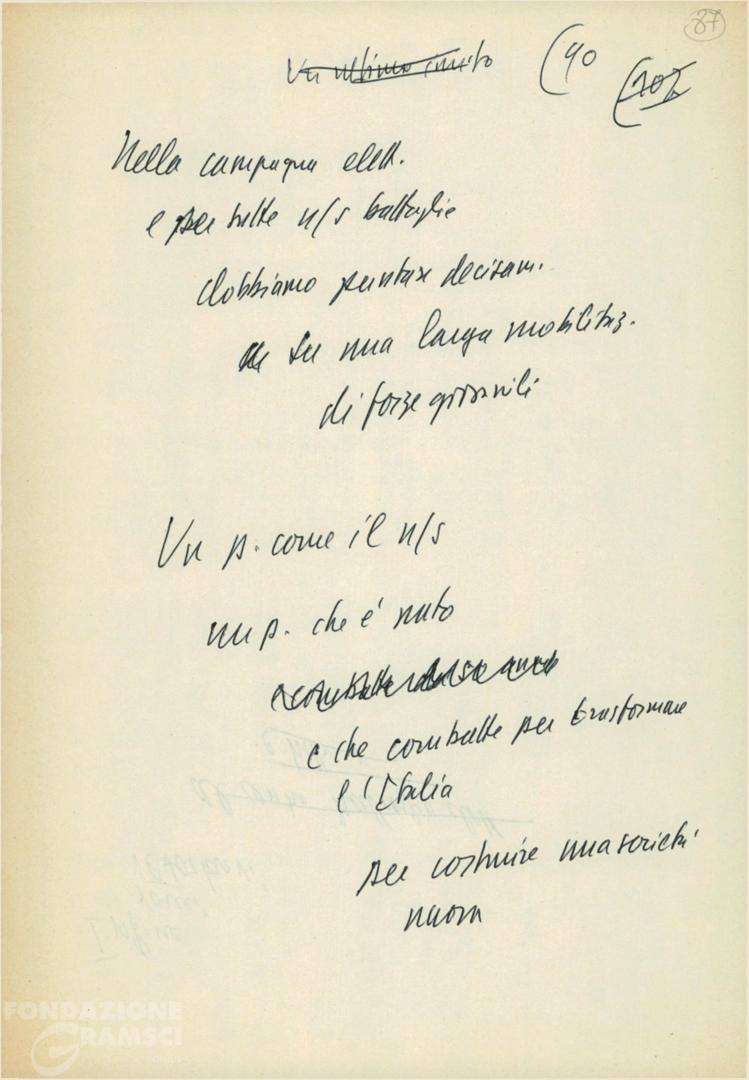 87
Un ultimo invito (90
(107
Nella campagna elett.
e per tutte n/s battaglie
dobbiamo puntare decisam.
su una larga mobilitaz.
di forze giovanili
Un p. come il n/s
un p. che è nato
e che combatte per trasformare
l'Italia
per costruire una società
nuova
FONDAZIONE
GRAMSCI